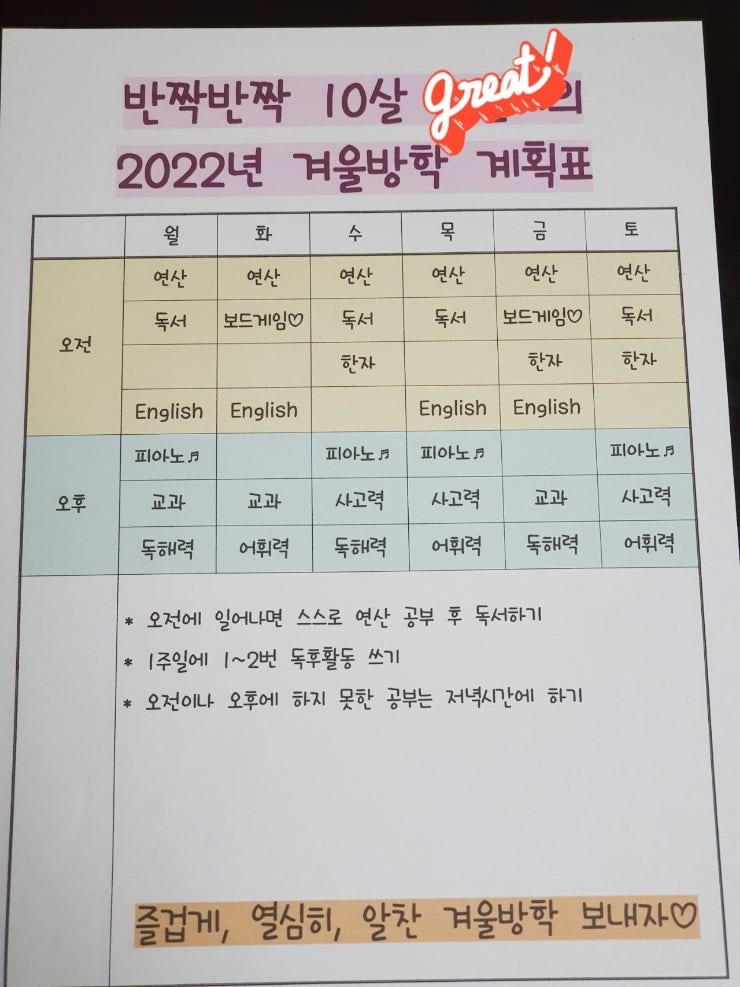 반짝반짝 10살 great! 의
2022년 겨울방학 계획표
월 화 수 목 금 토
연산 연산 연산 연산 연산 연산
독서 보드게임♡ 독서 독서 보드게임♡ 독서
오전
한자 한자 한자
English English English English
피아노♬ 피아노♬ 피아노♬ 피아노♬
오후 교과 교과 사고력 사고력 교과 사고력
독해력 어휘력 독해력 어휘력 독해력 어휘력
* 오전에 일어나면 스스로 연산 공부 후 독서하기
* 1주일에 1~2번 독후활동 쓰기
* 오전이나 오후에 하지 못한 공부는 저녁시간에 하기
즐겁게, 열심히, 알찬 겨울방학 보내자♡